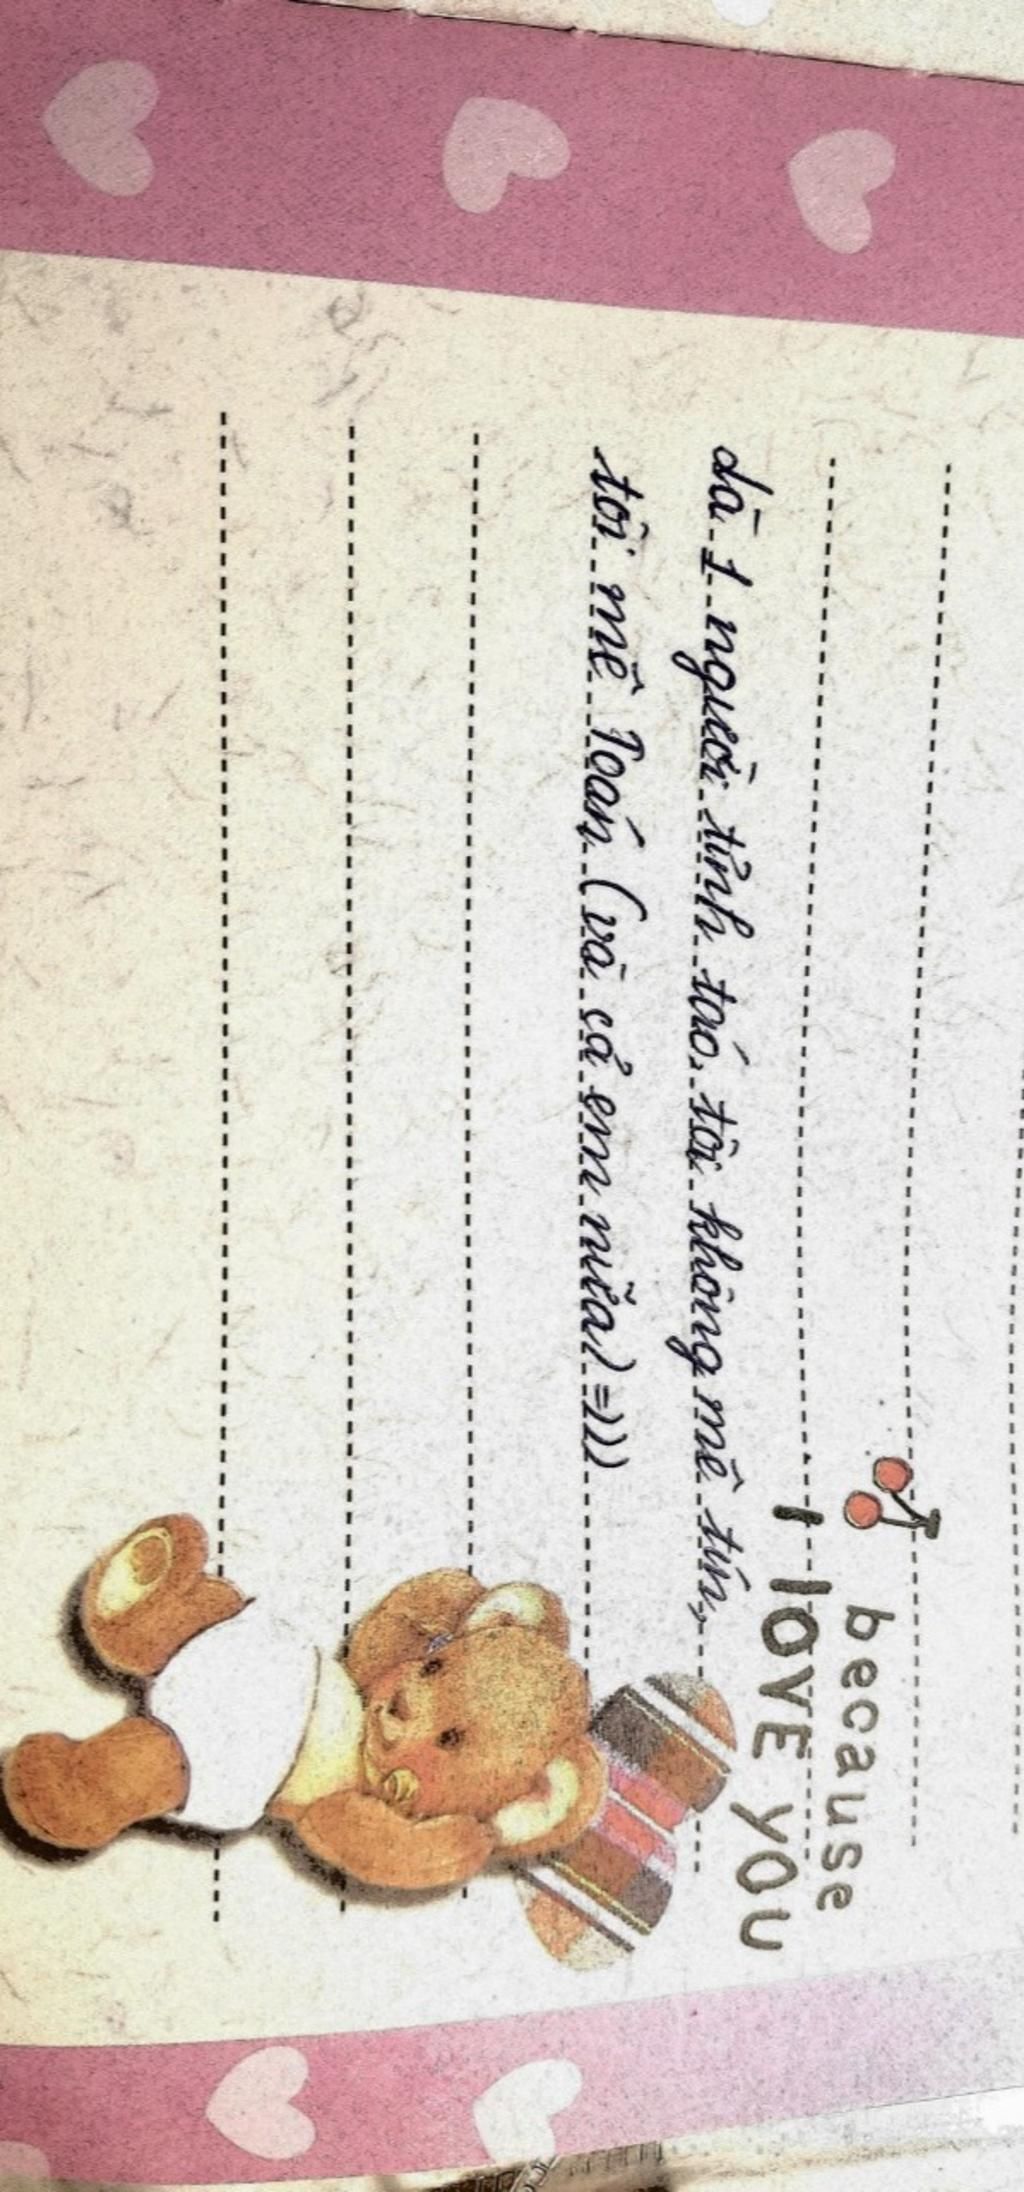 because
I love you
là 1 người tỉnh táo, tôi không mê tín,
tôi mê Toán (và cả em nữa) =)))